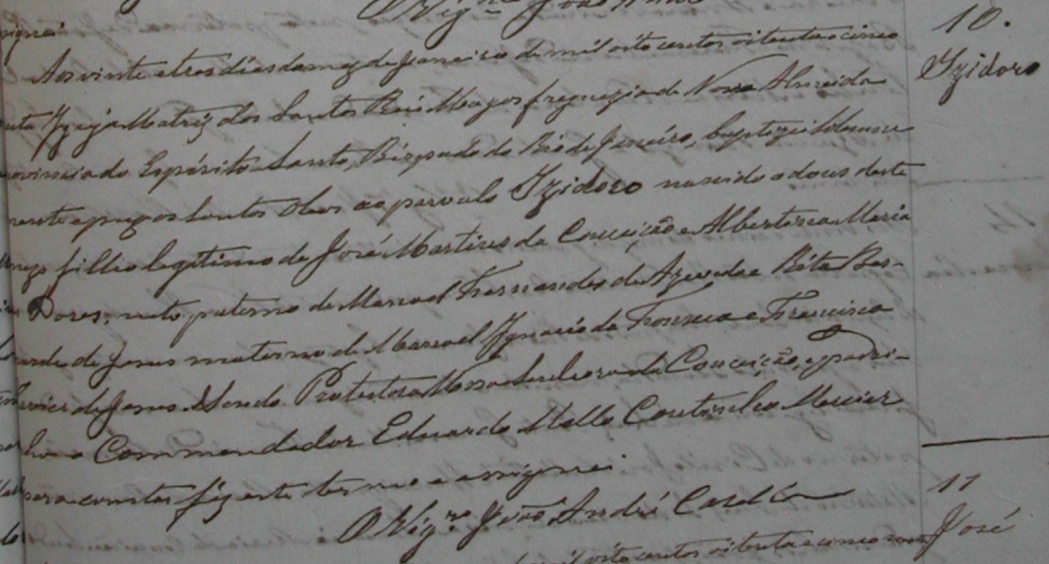 O Vigr.º João André
assignei
10.
Izidoro
Aos vinte e tres dias do mez de Janeiro de mil oito centos oitenta e cinco
nesta Igreja Matriz dos Santos Reis Magos freguezia de Nova Almeida
provincia do Espirito Santo, Bispado do Rio de Janeiro, baptizei solemne
mente e puz os Santos Oleos ao parvulo Izidoro nascido a dous deste
mez filho legitimo de José Martires da Conceição e Albertina Maria
Dores, neto paterno de Manoel Fernandes de Azevedo e Rita Ber-
narda de Jesus materno de Manoel Ignacio da Fonseca e Francisca
Xavier de Jesus. Sendo Protectora Nossa Senhora da Conceição, e padri-
nho o Commendador Eduardo Mello Coutinho Maciel
para constar fiz este termo e assignei
O Vigr.º João André Casella
11
José
mil oito centos oitenta e cinco